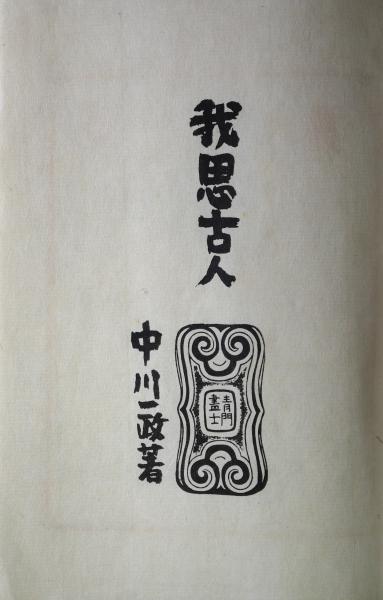 我思古人
中川一政著
青門
畫士